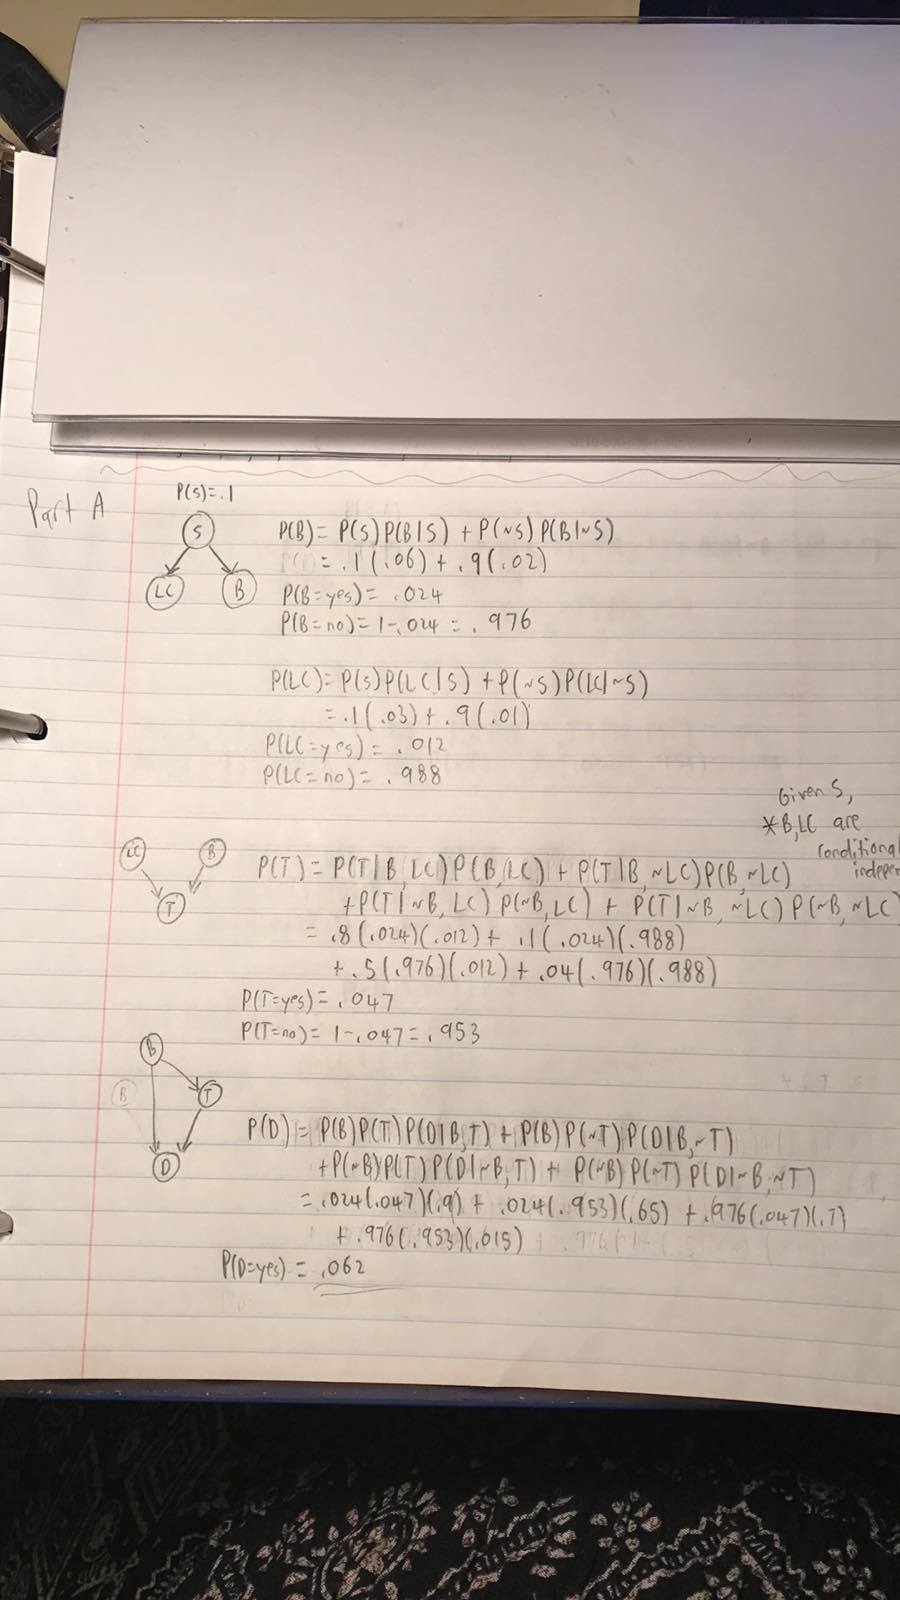 Part A
P(S)=.1
S
LC B
P(B)= P(S)P(B|S) + P(~S)P(B|~S)
= .1(.06) + .9(.02)
P(B=yes)= .024
P(B=no)= 1-.024 = .976
P(LC)= P(S)P(LC|S) + P(~S)P(LC|~S)
= .1(.03) + .9(.01)
P(LC=yes) = .012
P(LC=no) = .988
Given S,
*B,LC are
conditional
indepen
LC B
T
P(T) = P(T|B,LC)P(B,LC) + P(T|B,~LC)P(B,~LC)
+P(T|~B,LC)P(~B,LC) + P(T|~B,~LC)P(~B,~LC)
= .8(.024)(.012) + .1(.024)(.988)
+ .5(.976)(.012) + .04(.976)(.988)
P(T=yes)= .047
P(T=no)= 1-.047=.953
B
B T
D
P(D)= P(B)P(T)P(D|B,T) + P(B)P(~T)P(D|B,~T)
+P(~B)P(T)P(D|~B,T) + P(~B)P(~T)P(D|~B,~T)
= .024(.047)(.9) + .024(.953)(.65) + .976(.047)(.7)
+ .976(.953)(.015)
P(D=yes) = .062